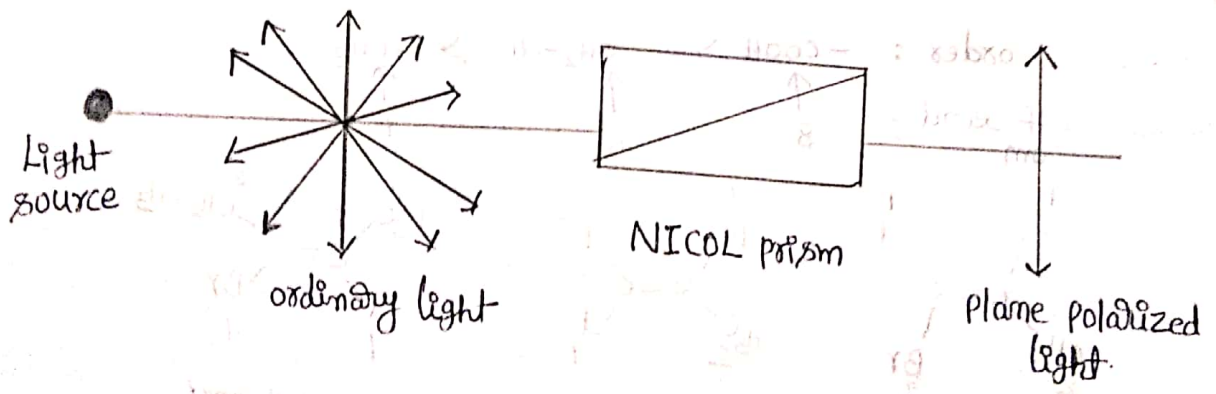 Light
source
ordinary light
NICOL prism
plane polarized
light.